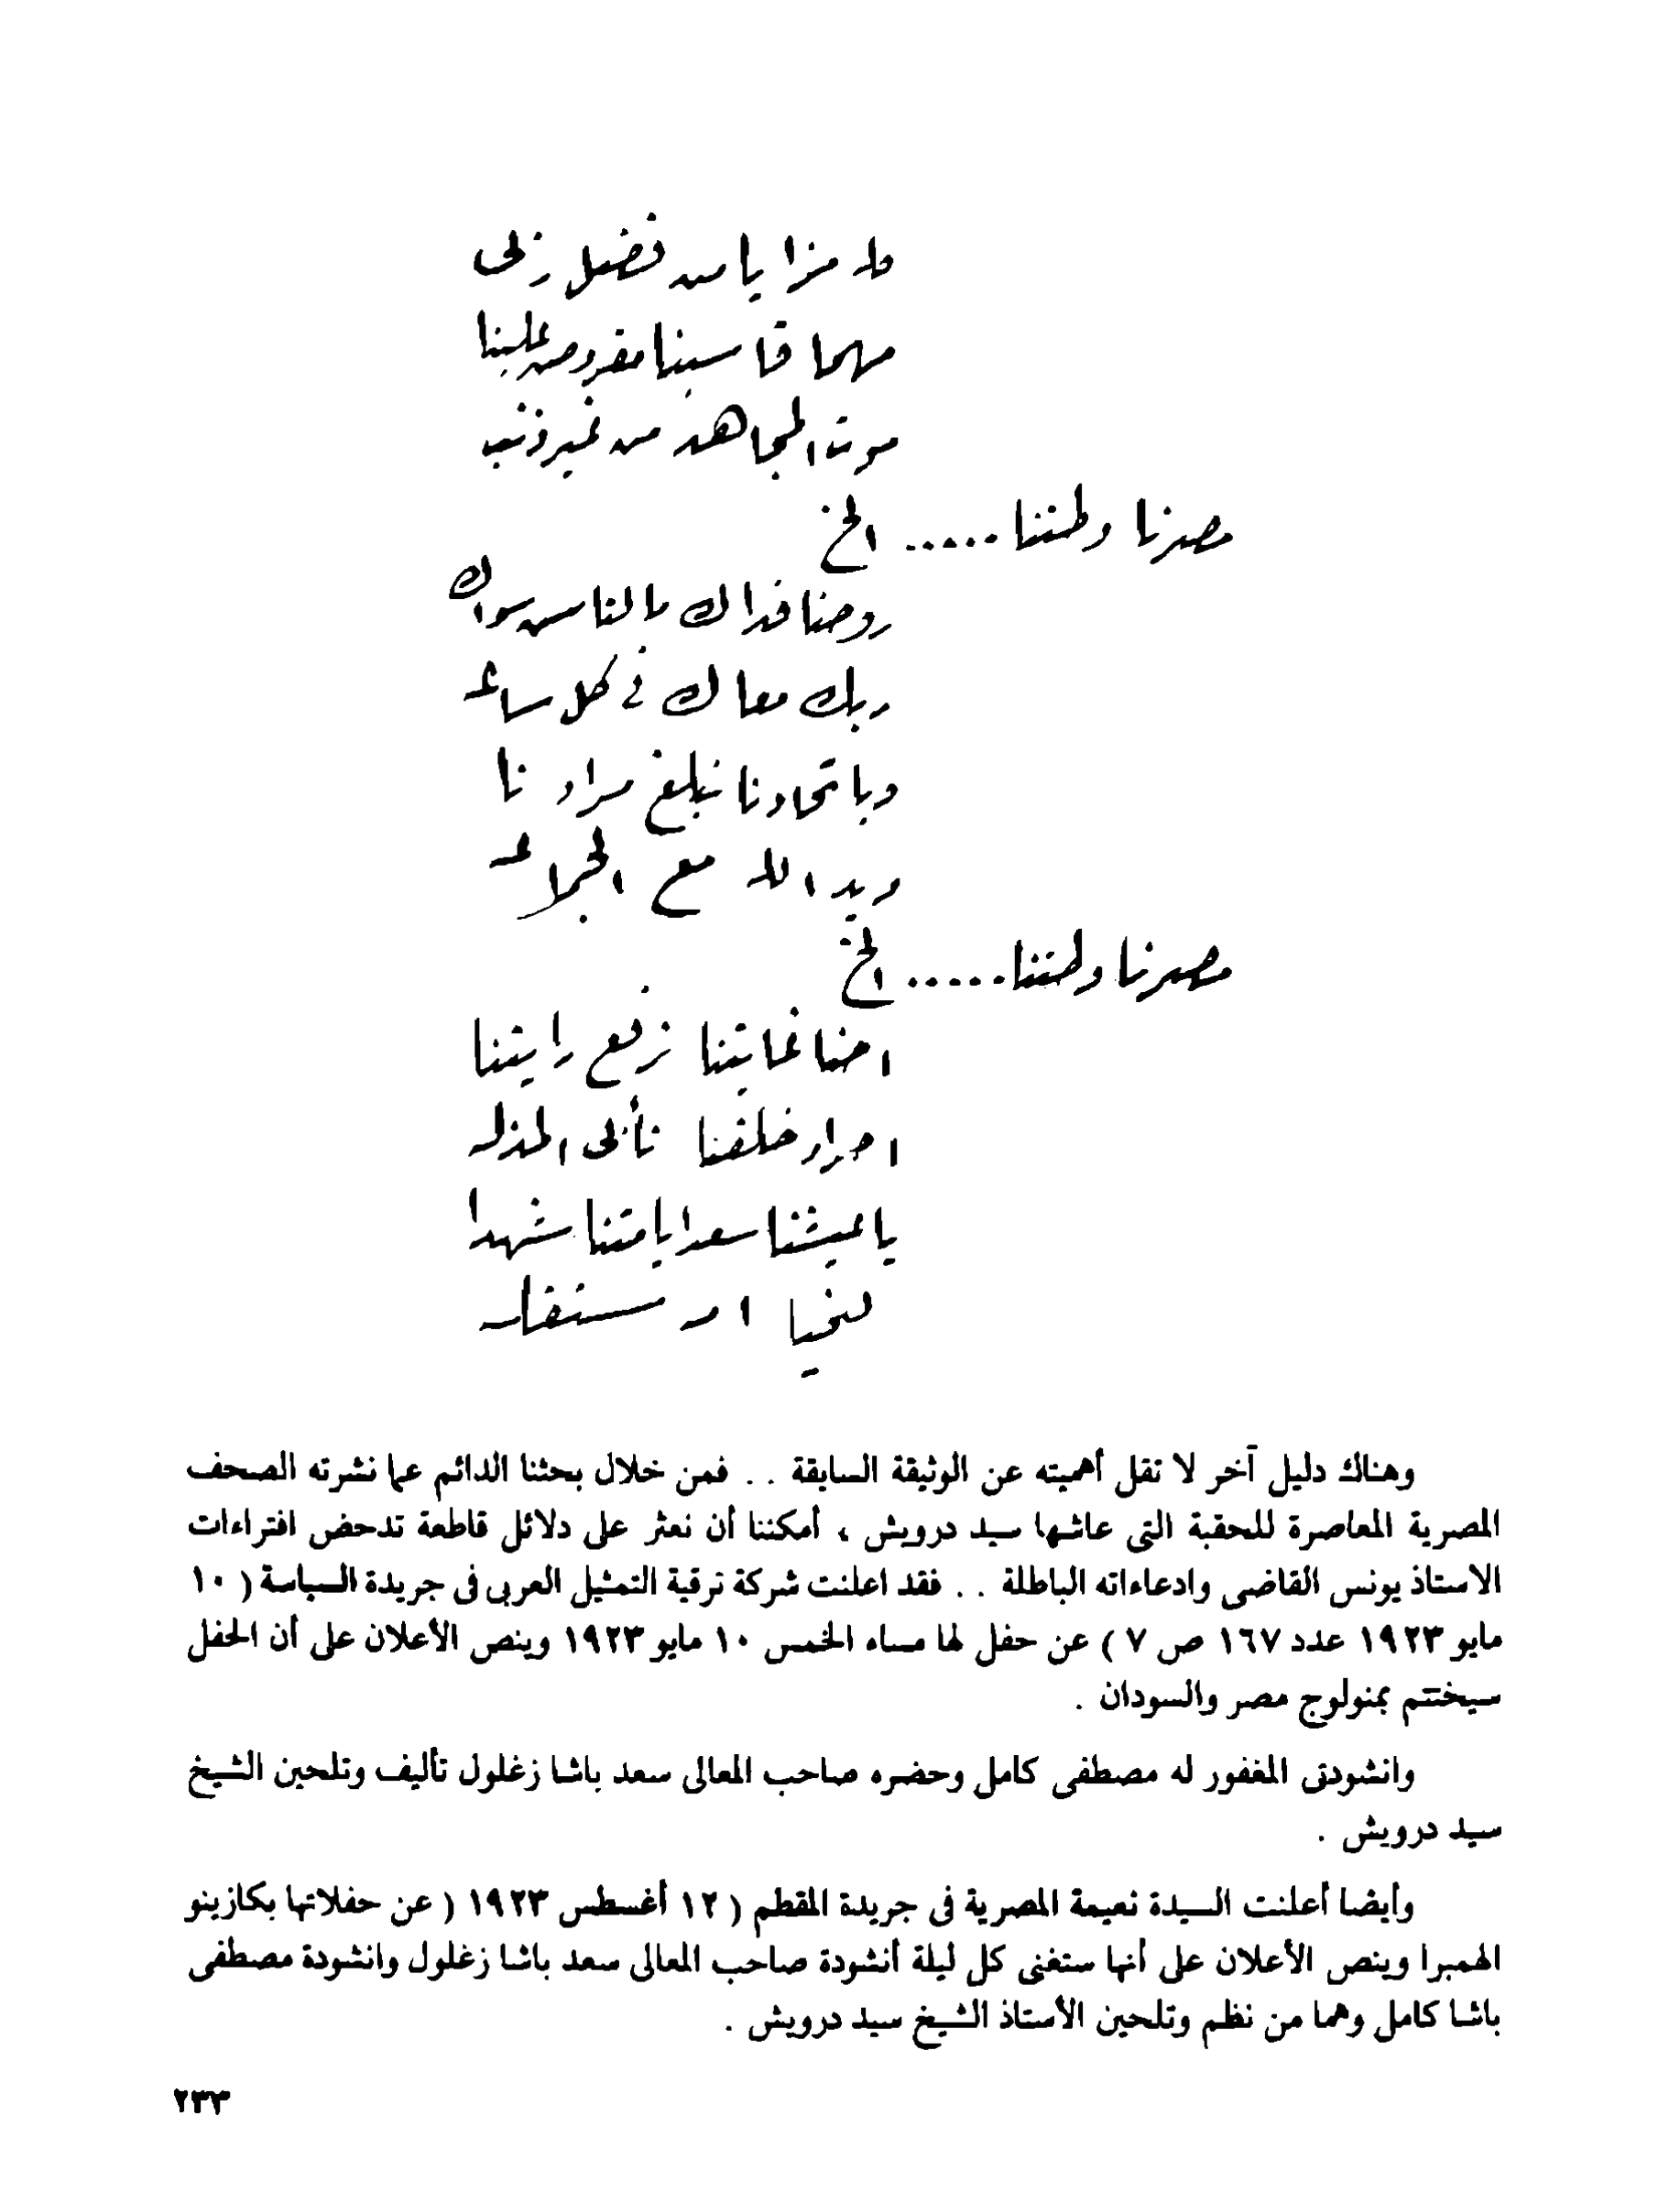 دا مزايا من فضل ربى
مهما قاسينا مفروض علينا
موت المجاهد من غير ذنب
مصرنا وطننا ..... الخ
روحنا فداك مالناس سواك
ربك معاك فى كل ساعه
وباتحادنا نبلغ مرادنا
ويد الله مع الجماعه
مصرنا وطننا ..... الخ
احنا غايتنا نرفع رايتنا
احرار خلقنا نأبى المذله
يا عيشنا سعدا يا متنا شهدا
لنحيا
وهناك دليل آخر لا تقل أهميته عن الوثيقة السابقة . . فمن خلال بحثنا الدائم عما نشرته الصحف
المصرية المعاصرة للحقبة التى عاشها سيد درويش ، أمكننا أن نعثر على دلائل قاطعة تدحض افتراءات
الاستاذ يونس القاضى وادعاءاته الباطلة . . فقد اعلنت شركة ترقية التمثيل العربى فى جريدة السياسة ( ١٠
مايو ١٩٢٣ عدد ١٦٧ ص ٧ ) عن حفل لها مساء الخمس ١٠ مايو ١٩٢٣ وينص الأعلان على أن الحفل
سيختتم بمنولوج مصر والسودان .
وانشودتى المغفور له مصطفى كامل وحضره صاحب المعالى سعد باشا زغلول تأليف وتلحين الشيخ
سيد درويش .
وأيضا أعلنت السيدة نعيمة المصرية فى جريدة المقطم ( ١٢ أغسطس ١٩٢٣ ( عن حفلاتها بكازينو
الهمبرا وينص الأعلان على أنها ستغنى كل ليلة أنشودة صاحب المعالى سعد باشا زغلول وانشودة مصطفى
باشا كامل وهما من نظم وتلحين الأستاذ الشيخ سيد درويش .
٢٣٣